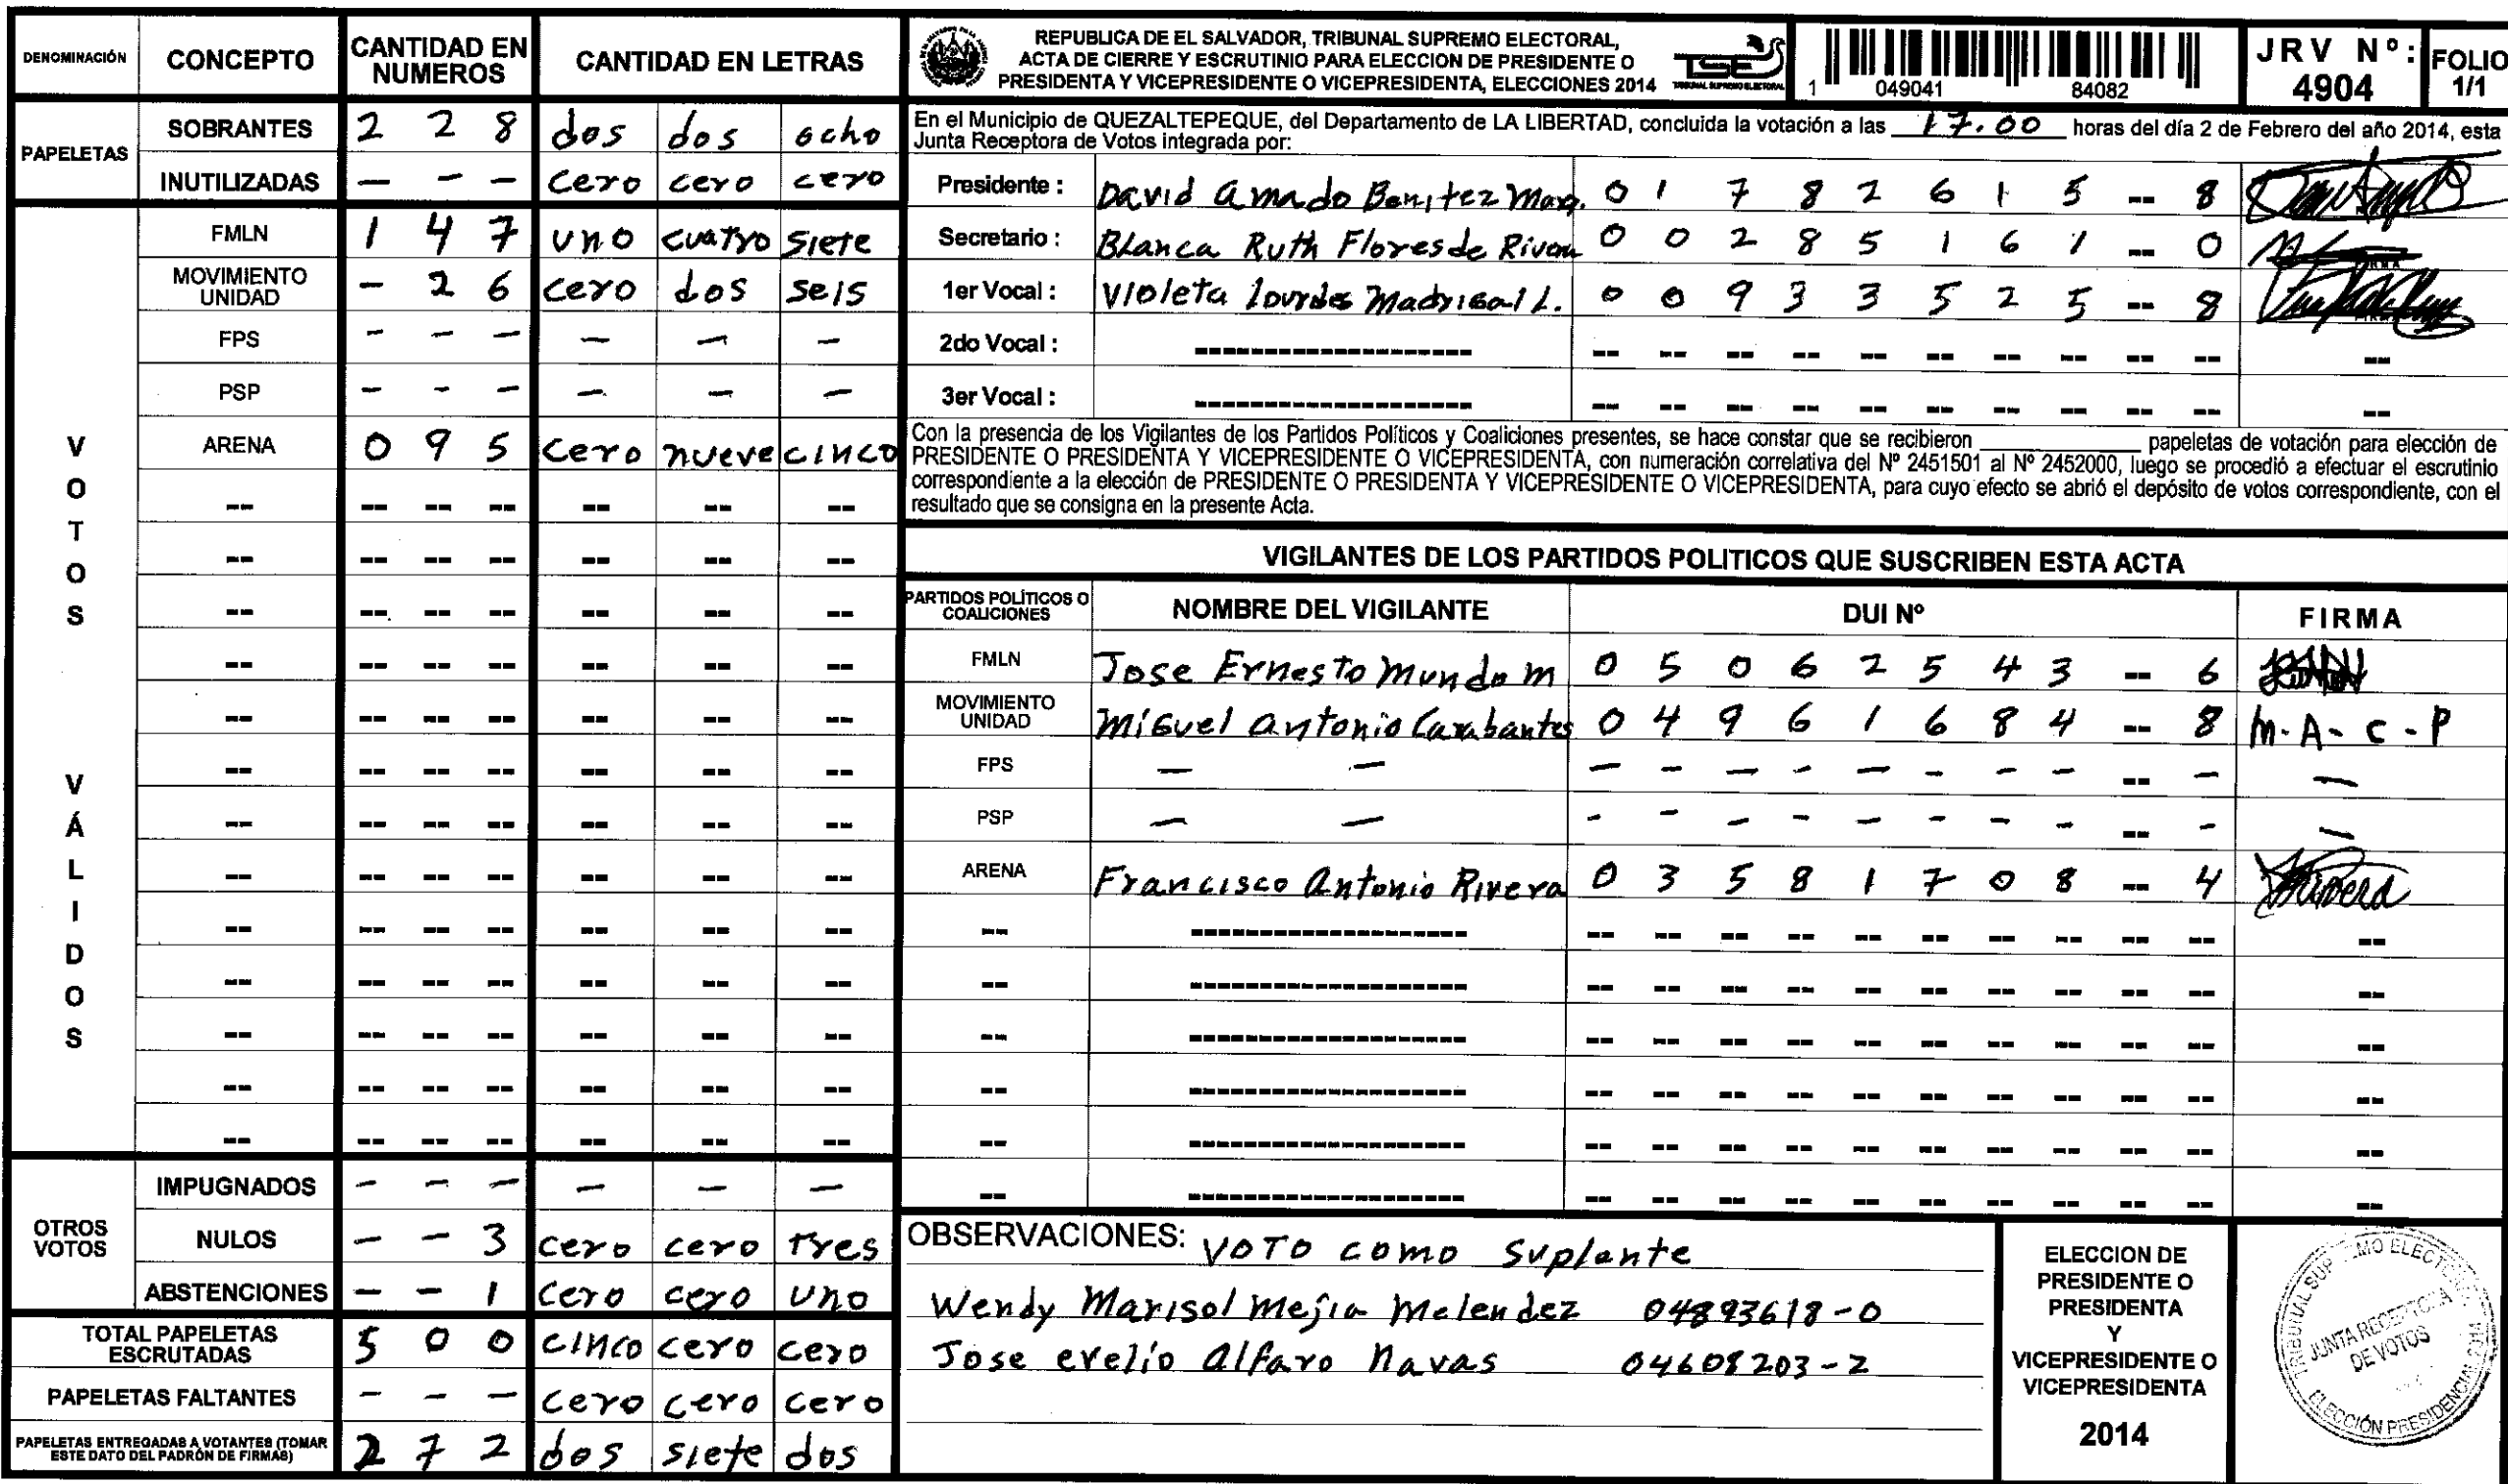 DENOMINACIÓN CONCEPTO CANTIDAD EN NUMEROS CANTIDAD EN LETRAS
PAPELETAS
SOBRANTES 2 2 8 dos dos ocho
INUTILIZADAS — - - cero cero cero
VOTOS VÁLIDOS
FMLN 1 4 7 uno cuatro siete
MOVIMIENTO UNIDAD - 2 6 cero dos seis
FPS - - - - - -
PSP - - - - - -
ARENA 0 9 5 cero nueve cinco
-- -- -- -- -- -- --
-- -- -- -- -- -- --
-- -- -- -- -- -- --
-- -- -- -- -- -- --
-- -- -- -- -- -- --
-- -- -- -- -- -- --
-- -- -- -- -- -- --
-- -- -- -- -- -- --
-- -- -- -- -- -- --
-- -- -- -- -- -- --
-- -- -- -- -- -- --
-- -- -- -- -- -- --
-- -- -- -- -- -- --
OTROS VOTOS
IMPUGNADOS - - - - - -
NULOS - - 3 cero cero tres
ABSTENCIONES - - 1 cero cero uno
TOTAL PAPELETAS ESCRUTADAS 5 0 0 cinco cero cero
PAPELETAS FALTANTES - - - cero cero cero
PAPELETAS ENTREGADAS A VOTANTES (TOMAR ESTE DATO DEL PADRÓN DE FIRMAS) 2 7 2 dos siete dos
REPUBLICA DE EL SALVADOR, TRIBUNAL SUPREMO ELECTORAL,
ACTA DE CIERRE Y ESCRUTINIO PARA ELECCION DE PRESIDENTE O
PRESIDENTA Y VICEPRESIDENTE O VICEPRESIDENTA, ELECCIONES 2014
TSE
TRIBUNAL SUPREMO ELECTORAL
1 049041 84082
JRV Nº: 4904
FOLIO 1/1
En el Municipio de QUEZALTEPEQUE, del Departamento de LA LIBERTAD, concluida la votación a las 17.00 horas del día 2 de Febrero del año 2014, esta
Junta Receptora de Votos integrada por:
Presidente : David Amado Benitez Maq. 0 1 7 8 2 6 1 5 -- 8
Secretario : Blanca Ruth Flores de Rivera 0 0 2 8 5 1 6 1 -- 0
1er Vocal : Violeta Lourdes Madrigal L. 0 0 9 3 3 5 2 5 -- 8
2do Vocal : -------------------- -- -- -- -- -- -- -- -- -- -- --
3er Vocal : -------------------- -- -- -- -- -- -- -- -- -- -- --
Con la presencia de los Vigilantes de los Partidos Políticos y Coaliciones presentes, se hace constar que se recibieron ________ papeletas de votación para elección de
PRESIDENTE O PRESIDENTA Y VICEPRESIDENTE O VICEPRESIDENTA, con numeración correlativa del Nº 2451501 al Nº 2452000, luego se procedió a efectuar el escrutinio
correspondiente a la elección de PRESIDENTE O PRESIDENTA Y VICEPRESIDENTE O VICEPRESIDENTA, para cuyo efecto se abrió el depósito de votos correspondiente, con el
resultado que se consigna en la presente Acta.
VIGILANTES DE LOS PARTIDOS POLITICOS QUE SUSCRIBEN ESTA ACTA
PARTIDOS POLÍTICOS O COALICIONES NOMBRE DEL VIGILANTE DUI Nº FIRMA
FMLN Jose Ernesto Mundo M 0 5 0 6 2 5 4 3 -- 6
MOVIMIENTO UNIDAD Miguel Antonio Carabantes 0 4 9 6 1 6 8 4 -- 8 M-A-C-P
FPS - - - - - - - - - - -- - -
PSP - - - - - - - - - - -- - -
ARENA Francisco Antonio Rivera 0 3 5 8 1 7 0 8 -- 4 Rivera
-- -------------------- -- -- -- -- -- -- -- -- -- -- --
-- -------------------- -- -- -- -- -- -- -- -- -- -- --
-- -------------------- -- -- -- -- -- -- -- -- -- -- --
-- -------------------- -- -- -- -- -- -- -- -- -- -- --
-- -------------------- -- -- -- -- -- -- -- -- -- -- --
-- -------------------- -- -- -- -- -- -- -- -- -- -- --
OBSERVACIONES: VOTO como Suplente
Wendy Marisol Mejia Melendez 04893618-0
Jose evelio Alfaro Navas 04608203-2
ELECCION DE
PRESIDENTE O
PRESIDENTA
Y
VICEPRESIDENTE O
VICEPRESIDENTA
2014
JUNTA RECEPTORA
DE VOTOS
ELECCIÓN PRESIDENCIAL